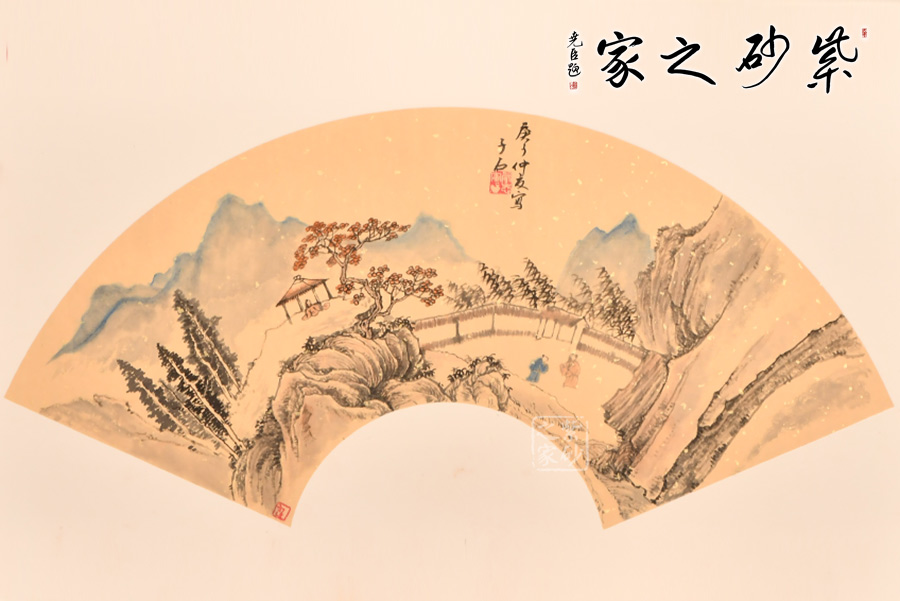 紫砂之家
尧臣题
庚子仲夏写
子石